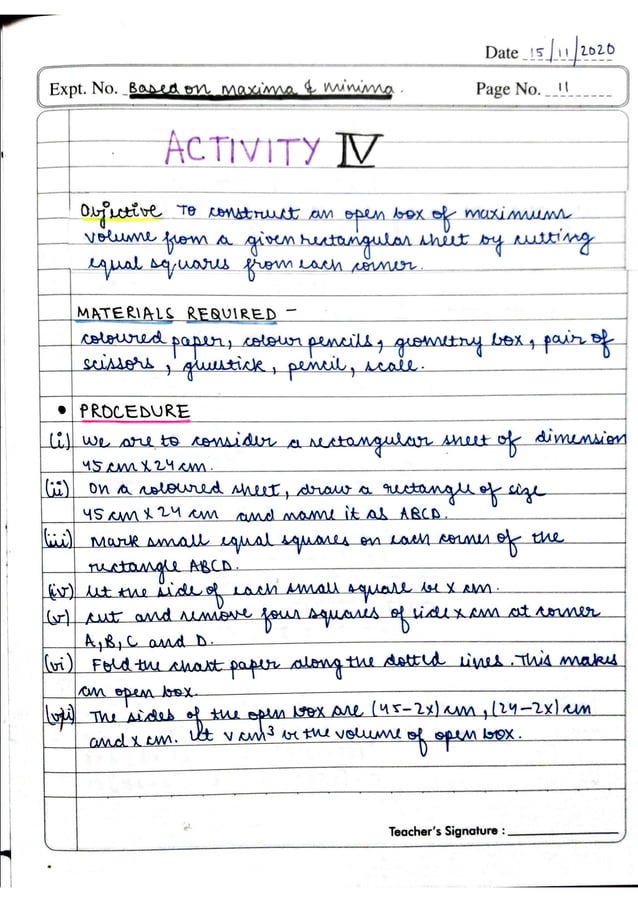 Date 15/11/2020
Expt. No. Based on maxima & minima. Page No. 11
ACTIVITY IV
Objective To construct an open box of maximum
volume from a given rectangular sheet by cutting
equal squares from each corner.
MATERIALS REQUIRED -
coloured paper, colour pencils, geometry box, pair of
scissors, gluestick, pencil, scale.
• PROCEDURE
(i) We are to consider a rectangular sheet of dimension
45 cm X 24 cm.
(ii) On a coloured sheet, draw a rectangle of size
45 cm X 24 cm and name it as ABCD.
(iii) Mark small equal squares on each corner of the
rectangle ABCD.
(iv) let the side of each small square be x cm.
(v) cut and remove four squares of side x cm at corner
A, B, C and D.
(vi) Fold the chart paper along the dotted lines. This makes
an open box.
(vii) The sides of the open box are (45-2x) cm, (24-2x) cm
and x cm. let V cm³ be the volume of open box.
Teacher's Signature :